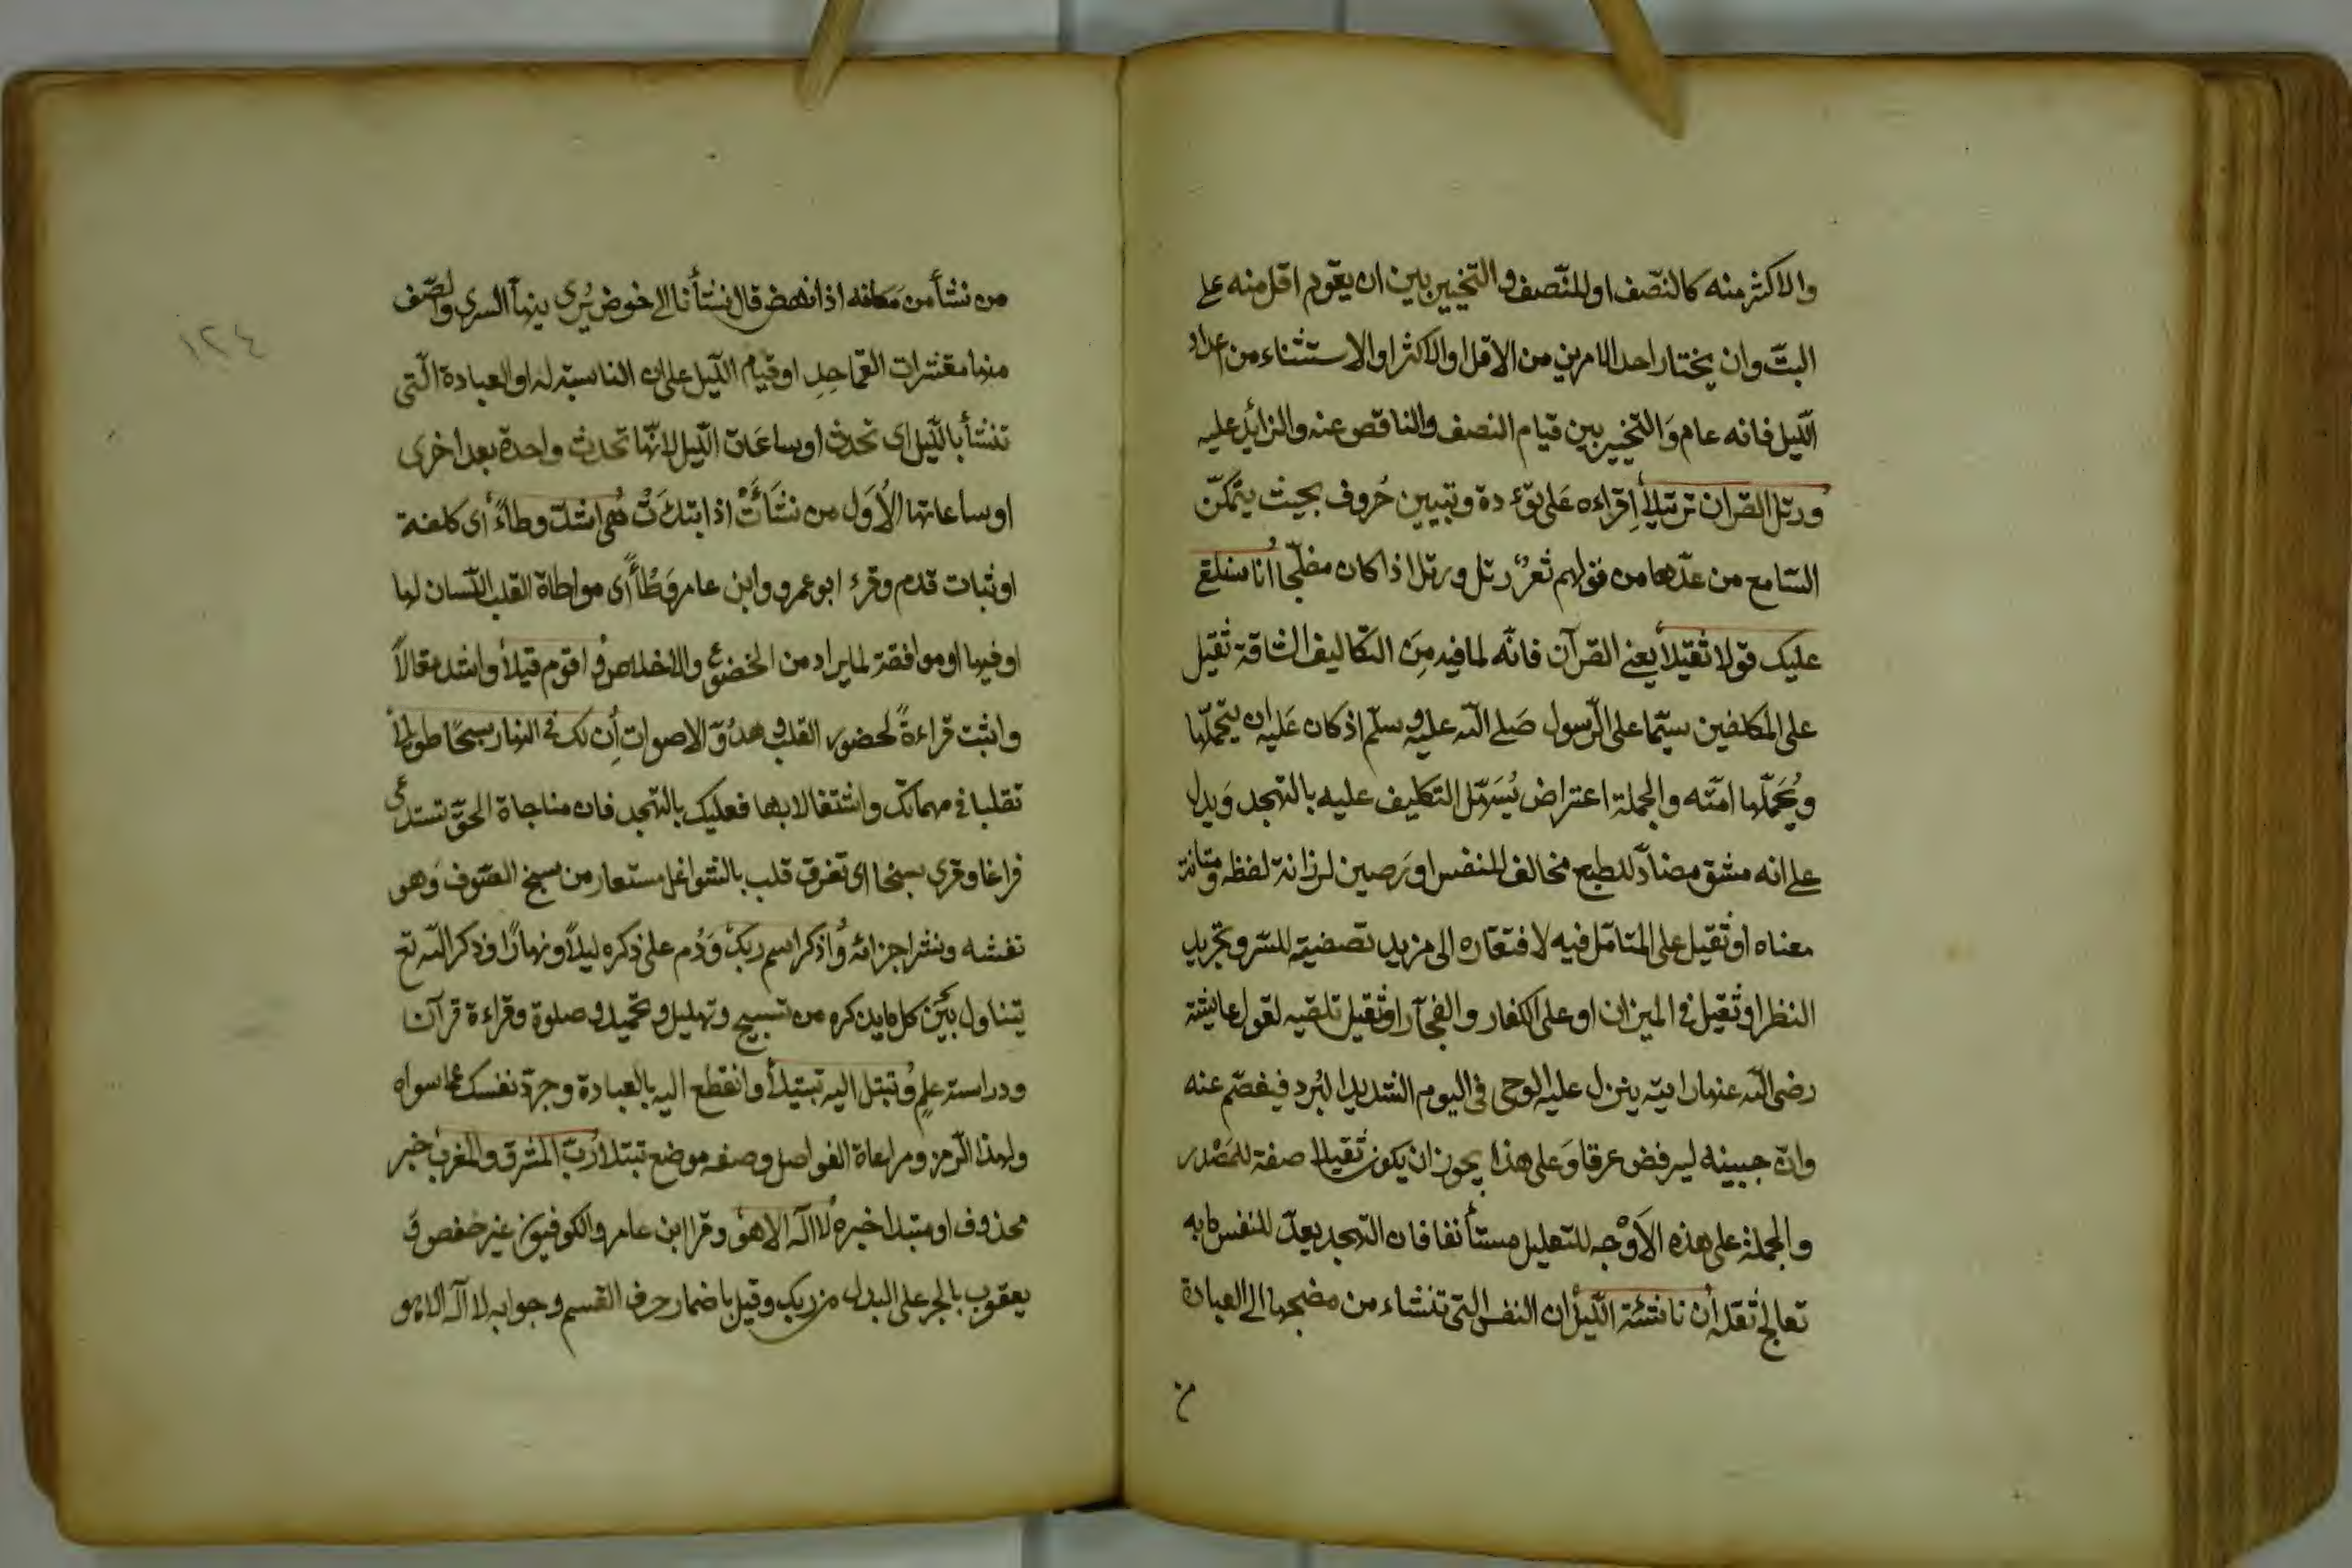 والاكثر منه كالنّصف او للنّصف والتخيير بين ان يقوم اقل منه على
البتّ وان يختار احد الامرين من الاقل او الاكثر او الاستثناء من اعداد
اللّيل فانه عام وَالتخيير بين قيام النصف والناقص عنه والزائد عليه
ورتل القران ترتيلاً اِقراءه عَلى تؤدة وتبيين حُروف بحيث يتمكّن
السّامع من عدّها من قولهم ثغرٌ رتل ورتل اذا كان مفلّجا اُنا سنلقى
عليك قولا ثقيلاً يعنى القرآن فانّه لما فيه مِنَ التكاليف الشاقة ثقيل
على المكلفين سيّما على الرّسول صَلى اللّه عليه وسلّم اذ كان عَليه ان يتحملّها
ويُحَمّلها امّته والجملة اعتراض يُسَهّل التكليف عليه بالتهجد وَيدل
على انه مشق مضادّ للطبع مخالف للنفس او رَصين لرزانة لفظه ومتانة
معناه او ثقيل على المتامّل فيه لافتقاره الى مزيد تصفيته للسّر وتجريد
النظر او ثقيل فى الميزان او على الكفار والفجّار او ثقيل تلقيه لقول عايشة
رضى اللّه عنها رايته ينزل عليه الوحى فى اليوم الشديد البُرد فيفصّم عنه
وانّ جبينه ليرفض عرقا وَعلى هذا يجوز ان يكون ثقيلا صفة للمَصْدر
والجملة على هذه الاَوْجه للتعليل مستأنفا فان التهجد يعدّ للنفس مابه
تعالج ثقله اُن ناشئة اللّيل ان النفس التى تنشاء من مضجعها الى العبادة
من
١٢٤
من نشأ من مَكانه اذا نهض قال نشأنا الى خوض يُرى بينهآ السرى والصّف
منها مقشرات القماحِدِ او قيام اللّيل على ان الناسبة له او العبادة الّتى
تنشأ بالّليل اى تحدث او ساعَات اللّيل لانّها تحدث واحدة بعد اخرى
او ساعاتها الاُوَل من نشَأَتْ اذا ابتدَتْ هُى اشدّ وطاءً اى كلفة
او ثبات قدم وقرء ابو عمرو وابن عامر وَطْأً اى مواطاة القلب اللّسان لها
او فيها او موافقة لما يراد من الخضوع والاخلاص وُاقوم قيلاً واشد مقالاً
واثبت قراءةً لحضور القلب وهدُوّ الاصوات اُن لك فى النهار سبحًا طويلاً
تقلبا فى مهماتك واشتغالا بها فعليك بالتهجد فان مناجاة الحقّ تستدعى
فراغا وقرى سبخا اى تفرق قلب بالشواغل مستعار من سبخ الصّوف وَهو
نفشه ونشر اجزائه وُاذكر اسم ربك وَدُم على ذكره ليلاً ونهارًا وذكر اللّه تع
يتناول كل ما يذكره من تسبيح وتهليل وتحميد وصلوة وقراءة قرآن
ودراسة علمٍ وُتبتل اليه تبتيلاً وانقطع اليه بالعبادة وجرّد نفسك عما سواه
ولهذا الرّمز ومراعاة الفواصل وصفه موضع تبتلا رُبّ المشرق والمغرب خبر
محذوف او مبتدا خبره لُا اله الا هو وقرا ابن عامر والكوفيون غير حفص و
يعقوب بالجر على البدل من ربك وقيل باضمار حرف القسم وجوابه لا اله الا هو